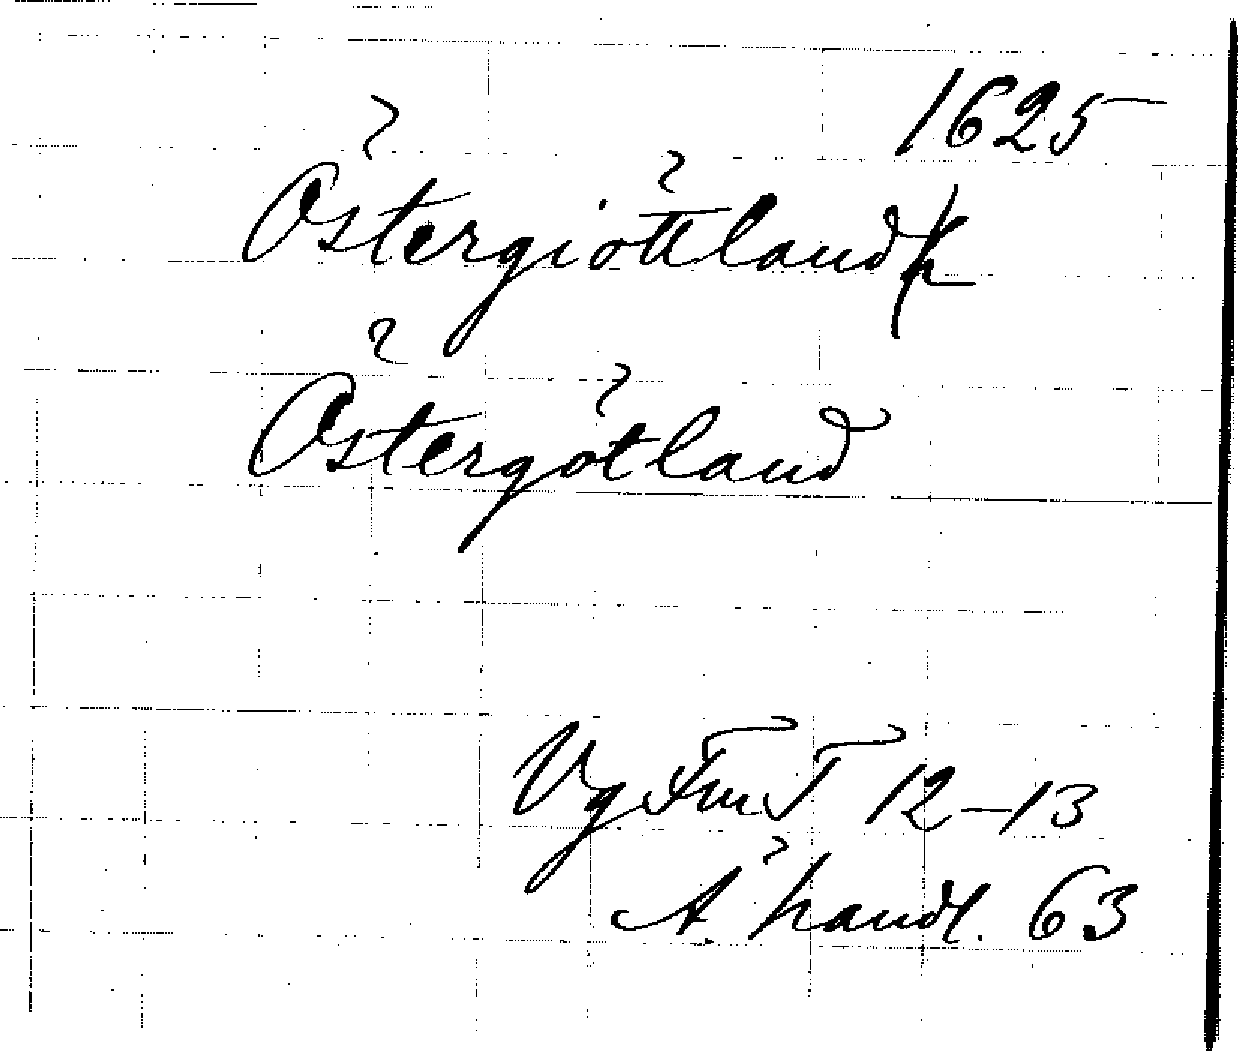 1625
Östergiöttland
Östergötland
Vg Fm T 12-13
A. handl. 63